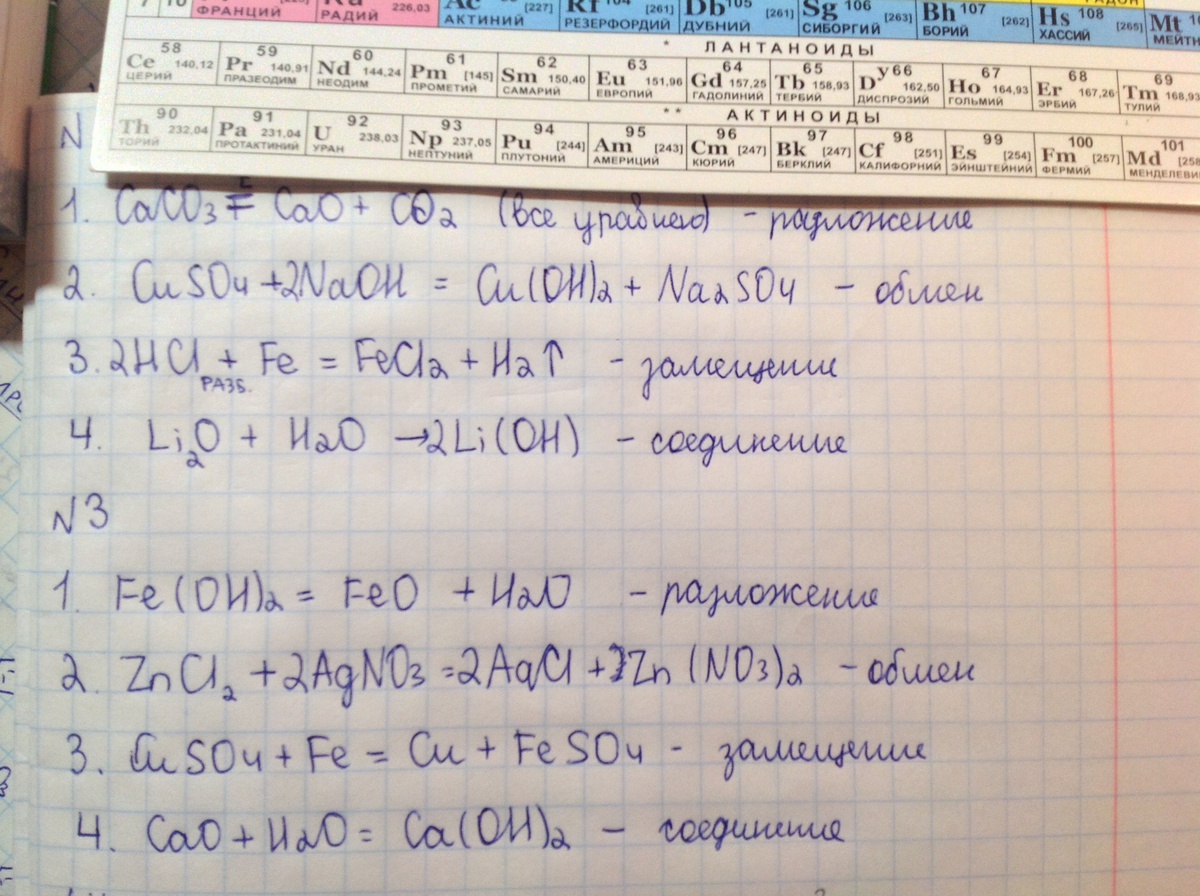 7 10 ФРАНЦИЙ РАДИЙ 226,03 АКТИНИЙ [227] Rf 104 [261] РЕЗЕРФОРДИЙ Db 105 [261] ДУБНИЙ Sg 106 [263] СИБОРГИЙ Bh 107 [262] БОРИЙ Hs 108 [265] ХАССИЙ Mt
* ЛАНТАНОИДЫ
58 59 60 61 62 63 64 65 66 67 68 69
Ce 140,12 Pr 140,91 Nd 144,24 Pm [145] Sm 150,40 Eu 151,96 Gd 157,25 Tb 158,93 Dy 162,50 Ho 164,93 Er 167,26 Tm 168,93
ЦЕРИЙ ПРАЗЕОДИМ НЕОДИМ ПРОМЕТИЙ САМАРИЙ ЕВРОПИЙ ГАДОЛИНИЙ ТЕРБИЙ ДИСПРОЗИЙ ГОЛЬМИЙ ЭРБИЙ ТУЛИЙ
** АКТИНОИДЫ
90 91 92 93 94 95 96 97 98 99 100 101
Th 232,04 Pa 231,04 U 238,03 Np 237,05 Pu [244] Am [243] Cm [247] Bk [247] Cf [251] Es [254] Fm [257] Md [258
ТОРИЙ ПРОТАКТИНИЙ УРАН НЕПТУНИЙ ПЛУТОНИЙ АМЕРИЦИЙ КЮРИЙ БЕРКЛИЙ КАЛИФОРНИЙ ЭЙНШТЕЙНИЙ ФЕРМИЙ МЕНДЕЛЕВИ
N
1. CaCO3 = CaO + CO2 (все уравнено) - разложение
2. CuSO4 + 2NaOH = Cu(OH)2 + Na2SO4 - обмен
3. 2HCl + Fe = FeCl2 + H2↑ - замещение
РАЗБ.
4. Li2O + H2O → 2Li(OH) - соединение
N3
1. Fe(OH)2 = FeO + H2O - разложение
2. ZnCl2 + 2AgNO3 = 2AgCl + Zn(NO3)2 - обмен
3. CuSO4 + Fe = Cu + FeSO4 - замещение
4. CaO + H2O = Ca(OH)2 - соединение